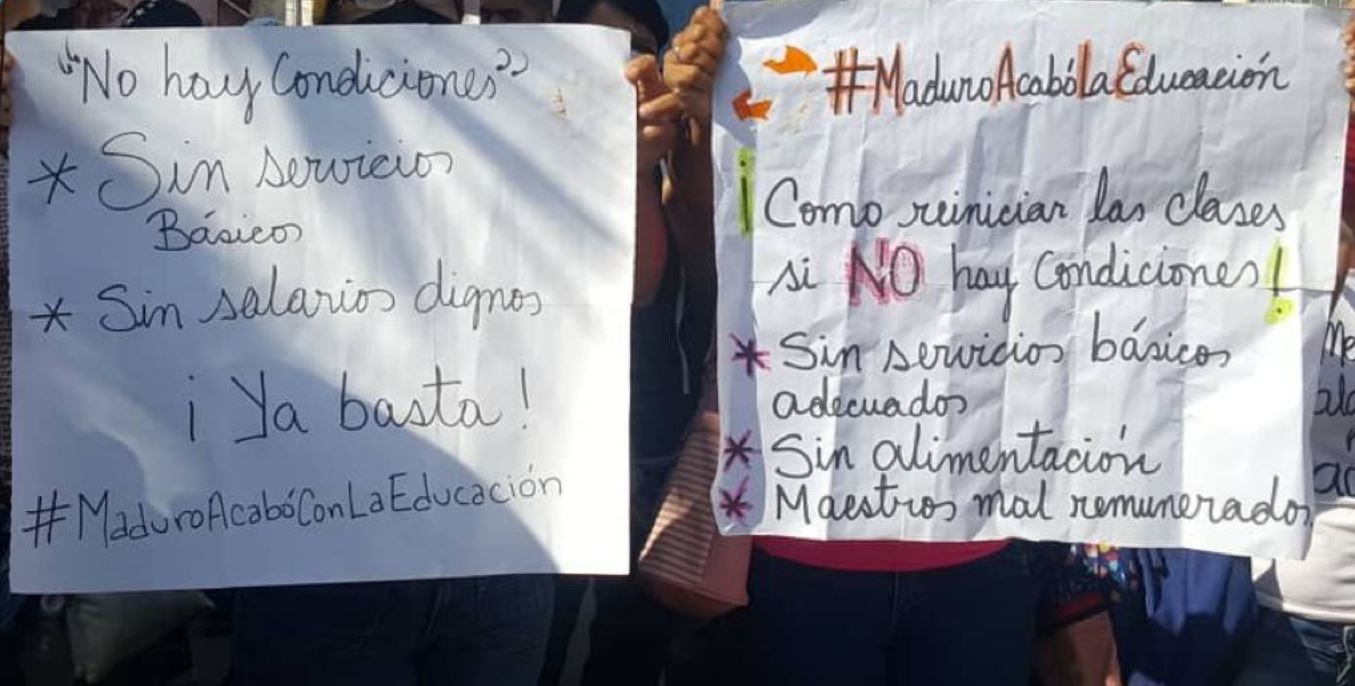 "No hay Condiciones"
* Sin servicios
Básicos
* Sin salarios dignos
¡Ya basta!
#MaduroAcabóConLaEducación
#MaduroAcabóLaEducación
¡Como reiniciar las clases
si NO hay Condiciones!
* Sin servicios básicos
adecuados
* Sin alimentación
* Maestros mal remunerados